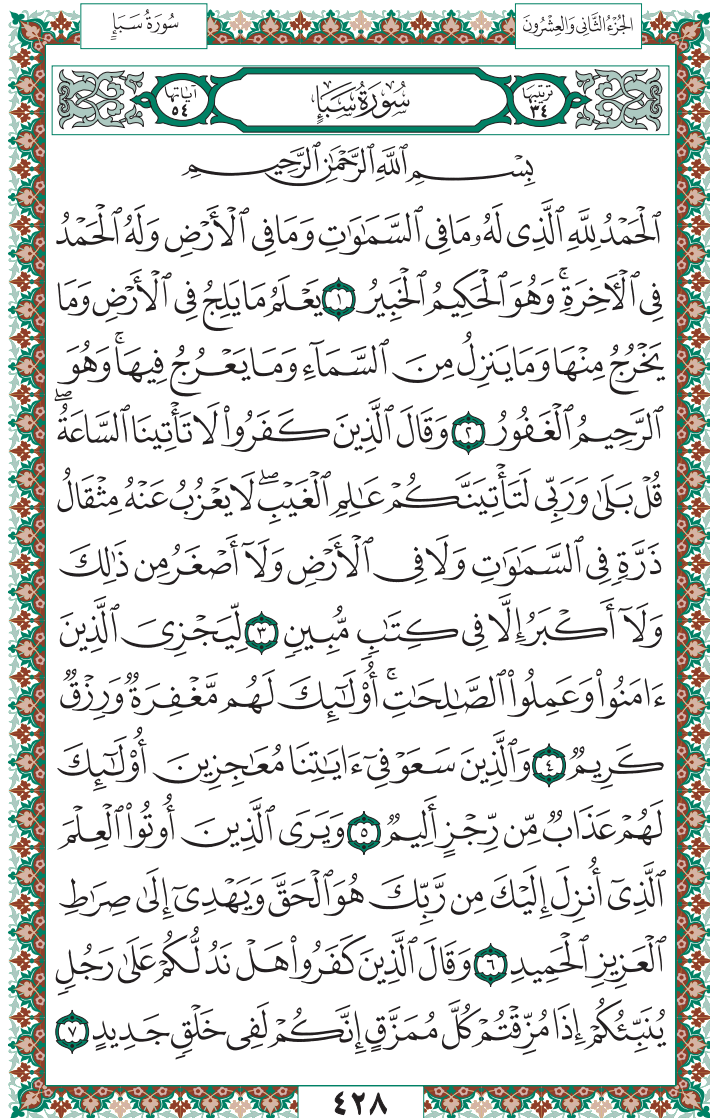 الجُزْءُ الثَّانِي وَالعِشْرُونَ
سُورَةُ سَبَإٍ
تَرْتِيبُهَا ٣٤
سُورَةُ سَبَإٍ
آيَاتُهَا ٥٤
بِسْمِ ٱللَّهِ ٱلرَّحْمَٰنِ ٱلرَّحِيمِ
ٱلْحَمْدُ لِلَّهِ ٱلَّذِى لَهُۥ مَا فِى ٱلسَّمَٰوَٰتِ وَمَا فِى ٱلْأَرْضِ وَلَهُ ٱلْحَمْدُ
فِى ٱلْأَخِرَةِۚ وَهُوَ ٱلْحَكِيمُ ٱلْخَبِيرُ ١ يَعْلَمُ مَا يَلِجُ فِى ٱلْأَرْضِ وَمَا
يَخْرُجُ مِنْهَا وَمَا يَنزِلُ مِنَ ٱلسَّمَآءِ وَمَا يَعْرُجُ فِيهَاۚ وَهُوَ
ٱلرَّحِيمُ ٱلْغَفُورُ ٢ وَقَالَ ٱلَّذِينَ كَفَرُوا۟ لَا تَأْتِينَا ٱلسَّاعَةُۖ
قُلْ بَلَىٰ وَرَبِّى لَتَأْتِيَنَّكُمْ عَٰلِمِ ٱلْغَيْبِۖ لَا يَعْزُبُ عَنْهُ مِثْقَالُ
ذَرَّةٍ فِى ٱلسَّمَٰوَٰتِ وَلَا فِى ٱلْأَرْضِ وَلَآ أَصْغَرُ مِن ذَٰلِكَ
وَلَآ أَكْبَرُ إِلَّا فِى كِتَٰبٍ مُّبِينٍ ٣ لِّيَجْزِىَ ٱلَّذِينَ
ءَامَنُوا۟ وَعَمِلُوا۟ ٱلصَّٰلِحَٰتِۚ أُو۟لَٰٓئِكَ لَهُم مَّغْفِرَةٌ وَرِزْقٌ
كَرِيمٌ ٤ وَٱلَّذِينَ سَعَوْ فِىٓ ءَايَٰتِنَا مُعَٰجِزِينَ أُو۟لَٰٓئِكَ
لَهُمْ عَذَابٌ مِّن رِّجْزٍ أَلِيمٌ ٥ وَيَرَى ٱلَّذِينَ أُوتُوا۟ ٱلْعِلْمَ
ٱلَّذِىٓ أُنزِلَ إِلَيْكَ مِن رَّبِّكَ هُوَ ٱلْحَقَّ وَيَهْدِىٓ إِلَىٰ صِرَٰطِ
ٱلْعَزِيزِ ٱلْحَمِيدِ ٦ وَقَالَ ٱلَّذِينَ كَفَرُوا۟ هَلْ نَدُلُّكُمْ عَلَىٰ رَجُلٍ
يُنَبِّئُكُمْ إِذَا مُزِّقْتُمْ كُلَّ مُمَزَّقٍ إِنَّكُمْ لَفِى خَلْقٍ جَدِيدٍ ٧
٤٢٨